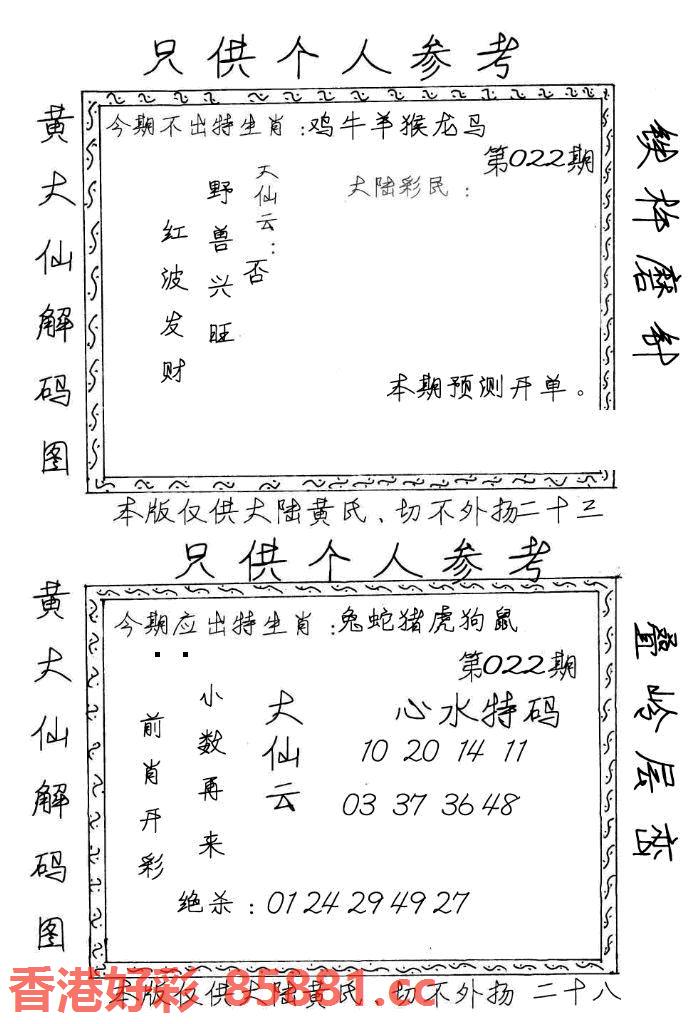 只供个人参考
黄大仙解码图
今期不出特生肖:鸡牛羊猴龙马
第022期
大仙云:否
野兽兴旺
红波发财
大陆彩民:
本期预测开单。
铁杵磨针
本版仅供大陆黄氏、切不外扬二十三
只供个人参考
黄大仙解码图
今期应出特生肖:兔蛇猪虎狗鼠
第022期
大仙云
小数再来
前肖开彩
心水特码
10 20 14 11
03 37 36 48
绝杀:01 24 29 49 27
叠岭层峦
本版仅供大陆黄氏、切不外扬 二十八
香港好彩 85881.cc